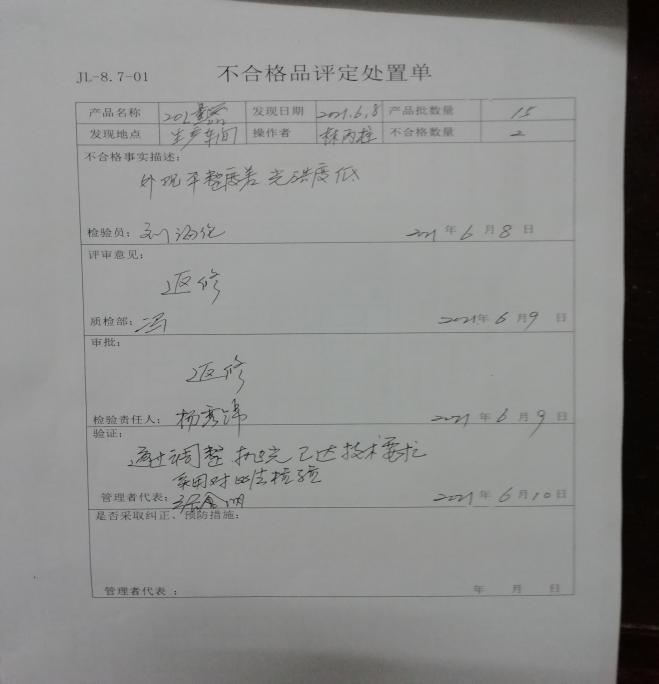 JL-8.7-01 不合格品评定处置单
产品名称 20L量器 发现日期 2021.6.8 产品批数量 15
发现地点 生产车间 操作者 林丙桂 不合格数量 2
不合格事实描述:
外观平整度差 光洁度低
检验员: 刘海伦 2021 年 6 月 8 日
评审意见:
返修
质检部: 冯 2021年 6 月 9 日
审批:
返修
检验责任人: 杨秀锦 2021 年 6 月 9 日
验证:
通过调整 抛光 已达技术要求
采用对比法检验
管理者代表: 2021 年 6 月 10 日
是否采取纠正、预防措施:
管理者代表 : 年 月 日